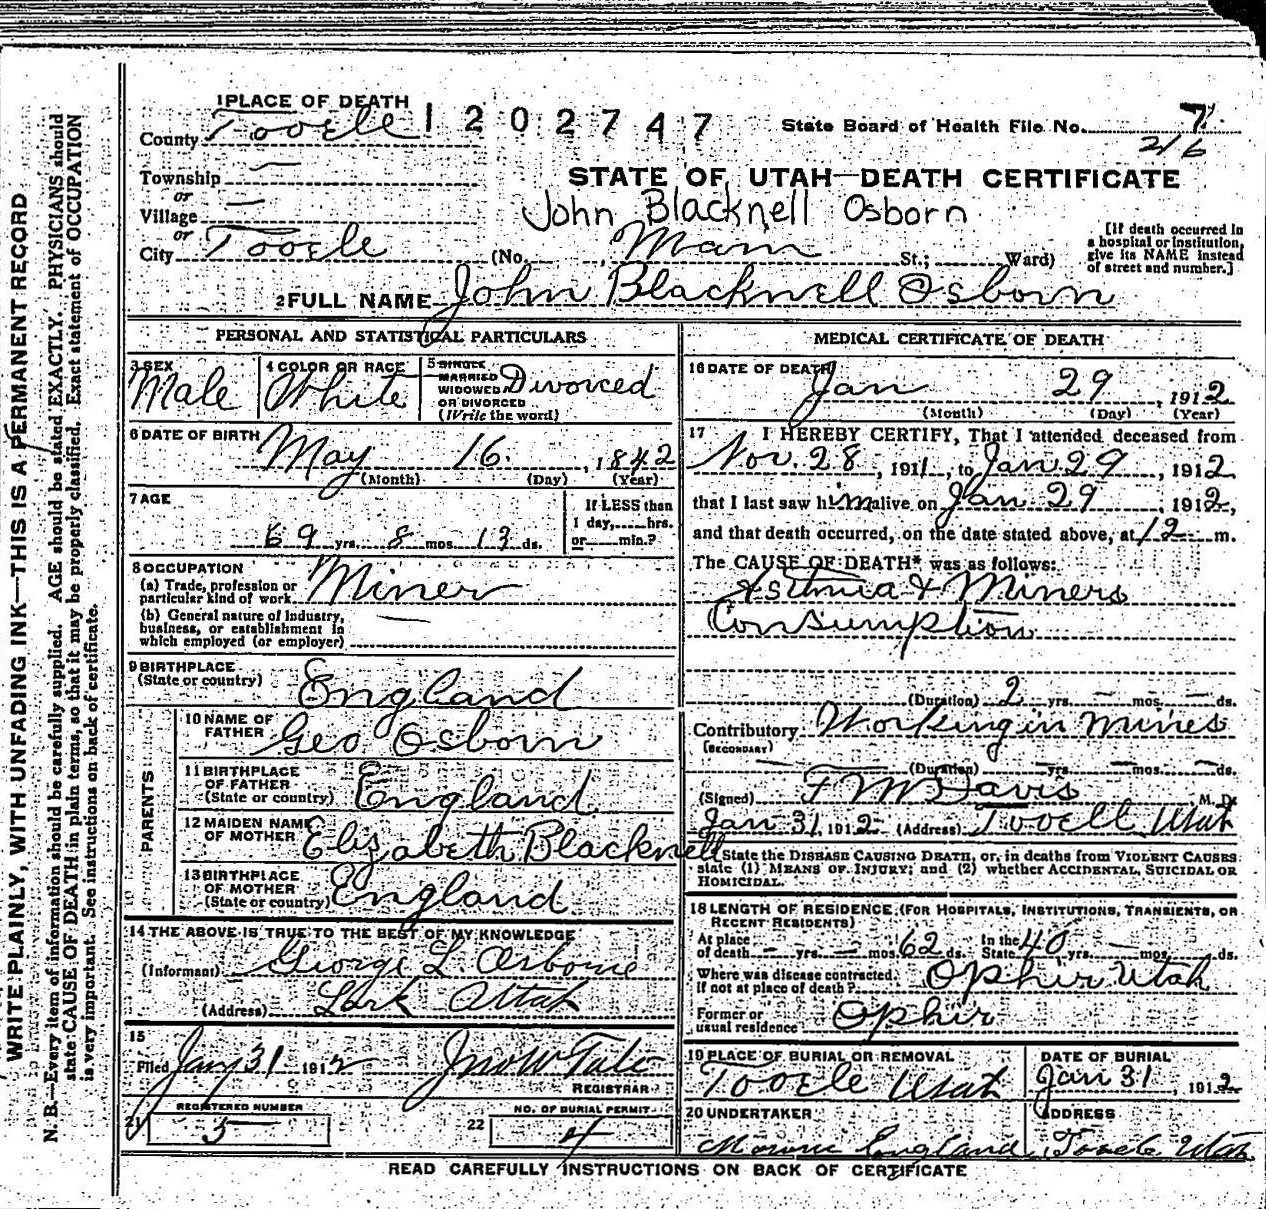 WRITE PLAINLY, WITH UNFADING INK—THIS IS A PERMANENT RECORD
N. B.—Every item of information should be carefully supplied. AGE should be stated EXACTLY. PHYSICIANS should
state CAUSE OF DEATH in plain terms, so that it may be properly classified. Exact statement of OCCUPATION
is very important. See instructions on back of certificate.
1 PLACE OF DEATH
County Tooele 1202747
State Board of Health File No. 7
216
Township —
or
Village —
or
City Tooele (No. , Main St.; Ward)
STATE OF UTAH—DEATH CERTIFICATE
John Blacknell Osborn
[If death occurred in
a hospital or institution,
give its NAME instead
of street and number.]
2 FULL NAME John Blacknell Osborn
PERSONAL AND STATISTICAL PARTICULARS
3 SEX
Male
4 COLOR OR RACE
White
5 SINGLE
MARRIED
WIDOWED
OR DIVORCED
(Write the word)
Divorced
6 DATE OF BIRTH
May 16. , 1842
(Month) (Day) (Year)
7 AGE
69 yrs. 8 mos. 13 ds.
If LESS than
1 day, hrs.
or min.?
8 OCCUPATION
(a) Trade, profession or
particular kind of work. Miner
(b) General nature of industry,
business, or establishment in
which employed (or employer) —
9 BIRTHPLACE
(State or country) England
PARENTS
10 NAME OF
FATHER Geo Osborn
11 BIRTHPLACE
OF FATHER
(State or country) England
12 MAIDEN NAME
OF MOTHER Elizabeth Blacknell
13 BIRTHPLACE
OF MOTHER
(State or country) England
14 THE ABOVE IS TRUE TO THE BEST OF MY KNOWLEDGE
(Informant) George L. Osborne
(Address) Lark Utah
15
Filed Jany 31 1912 Jno W Tate
REGISTRAR
21 REGISTERED NUMBER
5
22 NO. OF BURIAL PERMIT
4
MEDICAL CERTIFICATE OF DEATH
16 DATE OF DEATH
Jan 29 , 1912
(Month) (Day) (Year)
17 I HEREBY CERTIFY, That I attended deceased from
Nov. 28 , 1911, to Jan 29 , 1912,
that I last saw him alive on Jan 29 , 1912,
and that death occurred, on the date stated above, at 12 m.
The CAUSE OF DEATH* was as follows:
Astmia & Miners
Consumption
(Duration) 2 yrs. — mos. — ds.
Contributory Working in mines
(SECONDARY)
(Duration) — yrs. — mos. — ds.
(Signed) F M Davis M. D.
Jan 31, 1912 (Address) Tooell Utah
State the DISEASE CAUSING DEATH, or, in deaths from VIOLENT CAUSES
state (1) MEANS OF INJURY; and (2) whether ACCIDENTAL, SUICIDAL OR
HOMICIDAL.
18 LENGTH OF RESIDENCE (FOR HOSPITALS, INSTITUTIONS, TRANSIENTS, OR
RECENT RESIDENTS)
At place
of death — yrs. — mos. 62 ds. In the
State 40 yrs. — mos. ds.
Where was disease contracted.
If not at place of death? Ophir Utah
Former or
usual residence Ophir
19 PLACE OF BURIAL OR REMOVAL
Tooele Utah
DATE OF BURIAL
Jan 31 , 1912
20 UNDERTAKER
England
ADDRESS
Tooele Utah
READ CAREFULLY INSTRUCTIONS ON BACK OF CERTIFICATE